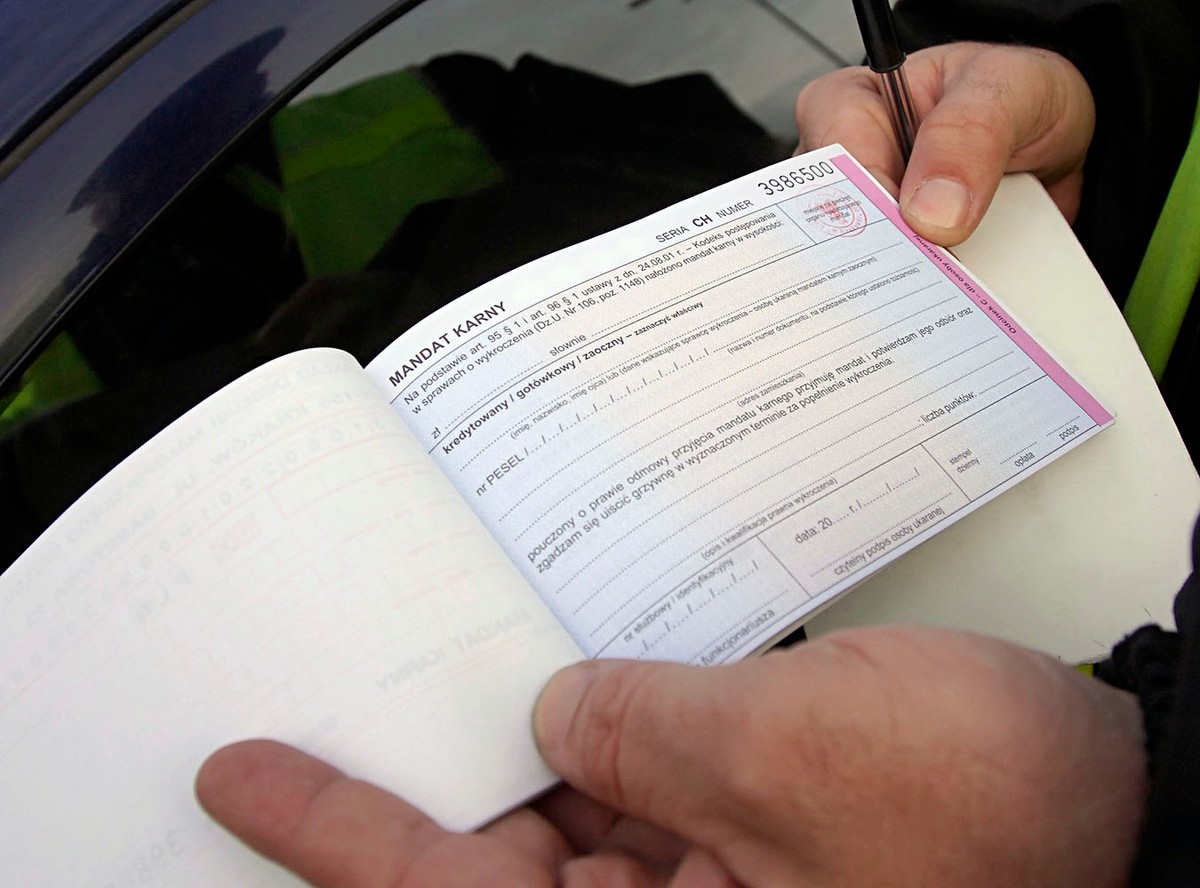 SERIA CH NUMER 3986500
MANDAT KARNY
Na podstawie art. 95 § 1 i art. 96 § 1 ustawy z dn. 24.08.01 r. – Kodeks postępowania
w sprawach o wykroczenia (Dz.U. Nr 106, poz. 1148) nałożono mandat karny w wysokości:
miejsce na pieczęć
organu
mandat
zł słownie
kredytowany / gotówkowy / zaoczny – zaznaczyć właściwy
(imię, nazwisko, imię ojca) lub (dane wskazujące sprawcę wykroczenia – osobę ukaraną mandatem karnym zaocznym)
nr PESEL /..../..../..../..../..../..../..../..../..../..../..../
(nazwa i numer dokumentu, na podstawie którego ustalono tożsamość)
(adres zamieszkania)
pouczony o prawie odmowy przyjęcia mandatu karnego przyjmuję mandat i potwierdzam jego odbiór oraz
zgadzam się uiścić grzywnę w wyznaczonym terminie za popełnienie wykroczenia:
; liczba punktów:
(opis i kwalifikacja prawna wykroczenia)
nr służbowy / identyfikacyjny
/..../..../..../..../..../
funkcjonariusza
data: 20..... r. /......./......./
czytelny podpis osoby ukaranej
stempel
dzienny
opłata
podpis
Odcinek C – dla osoby ukaranej
MANDAT KARNY